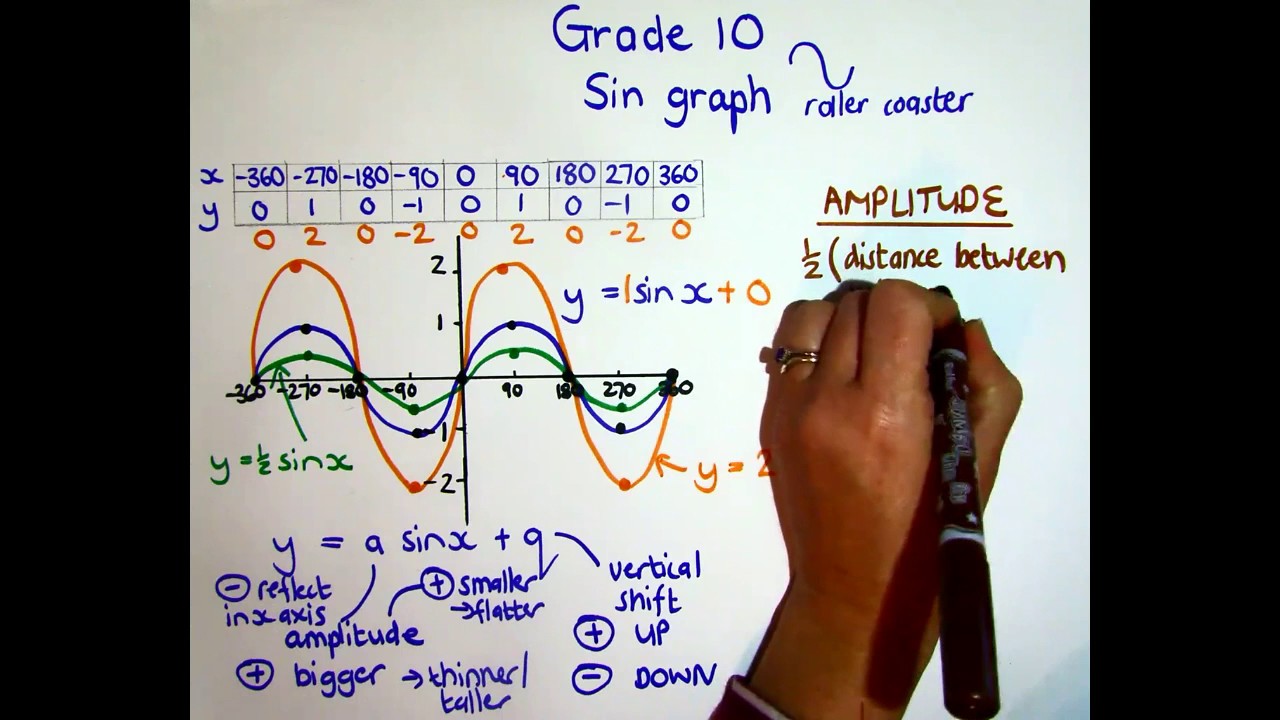 Grade 10
Sin graph roller coaster
x -360 -270 -180 -90 0 90 180 270 360
y 0 1 0 -1 0 1 0 -1 0
0 2 0 -2 0 2 0 -2 0
AMPLITUDE
½ (distance between
2
y = 1sin x + 0
1
-360 -270 -180 -90 90 180 270 360
-1
y = ½ sinx
y = 2
-2
y = a sinx + q
⊖ reflect
in x axis
amplitude
⊕ smaller
→ flatter
vertical
shift
⊕ UP
⊕ bigger → thinner/
taller
⊖ DOWN